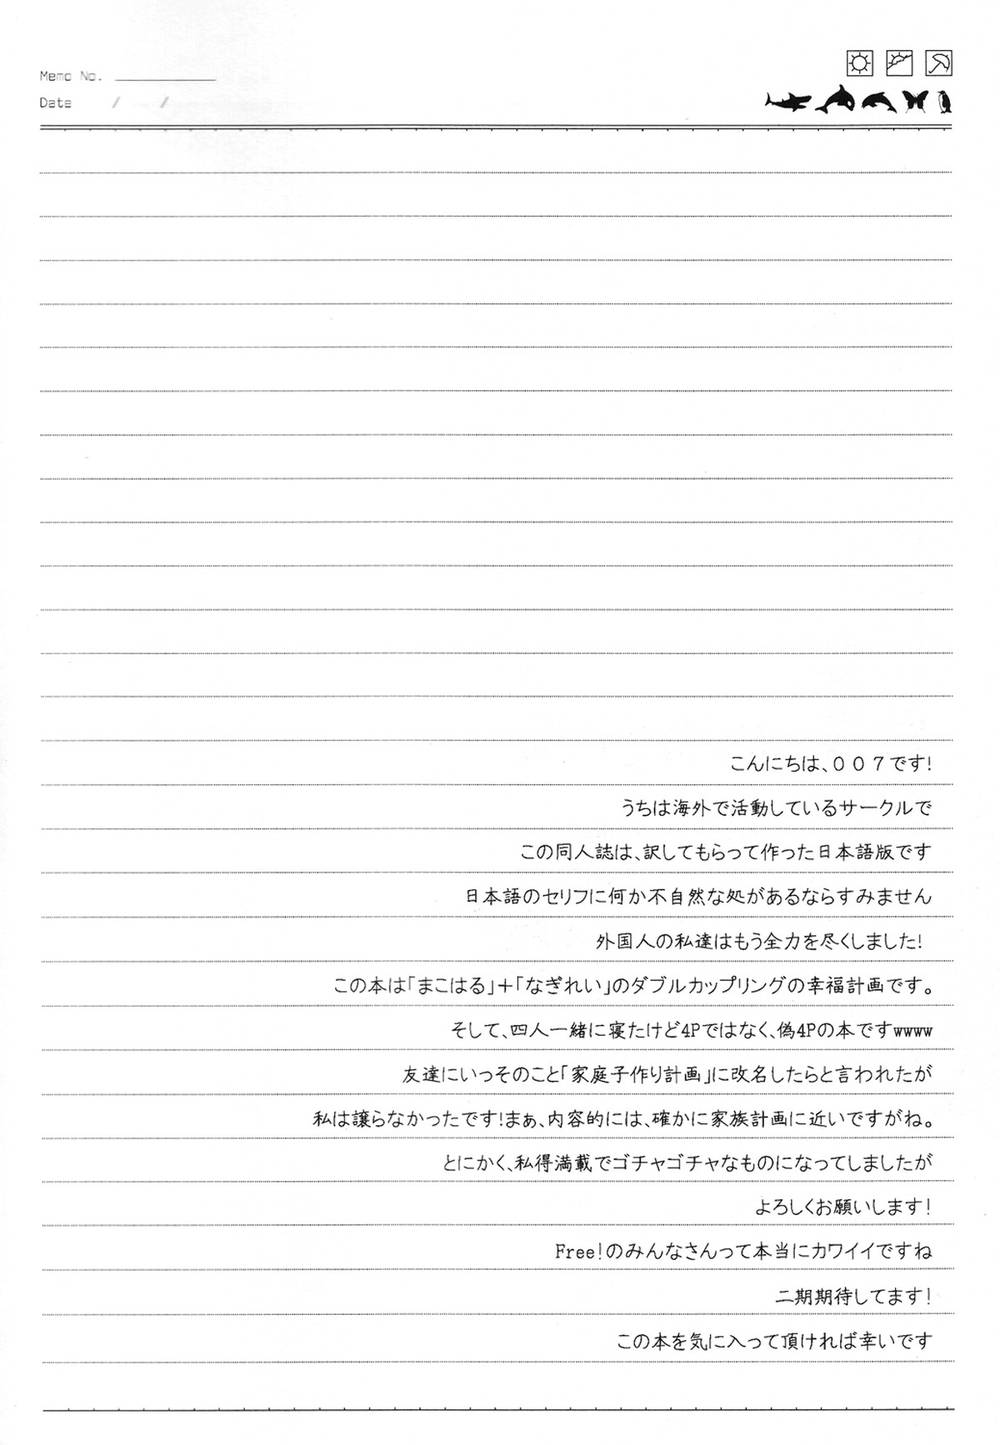 Memo No.
Date / /
こんにちは、００７です!
うちは海外で活動しているサークルで
この同人誌は、訳してもらって作った日本語版です
日本語のセリフに何か不自然な処があるならすみません
外国人の私達はもう全力を尽くしました!
この本は「まこはる」＋「なぎれい」のダブルカップリングの幸福計画です。
そして、四人一緒に寝たけど4Pではなく、偽4Pの本ですwwww
友達にいっそのこと「家庭子作り計画」に改名したらと言われたが
私は譲らなかったです!まぁ、内容的には、確かに家族計画に近いですがね。
とにかく、私得満載でゴチャゴチャなものになってしましたが
よろしくお願いします!
Free!のみんなさんって本当にカワイイですね
二期期待してます!
この本を気に入って頂ければ幸いです